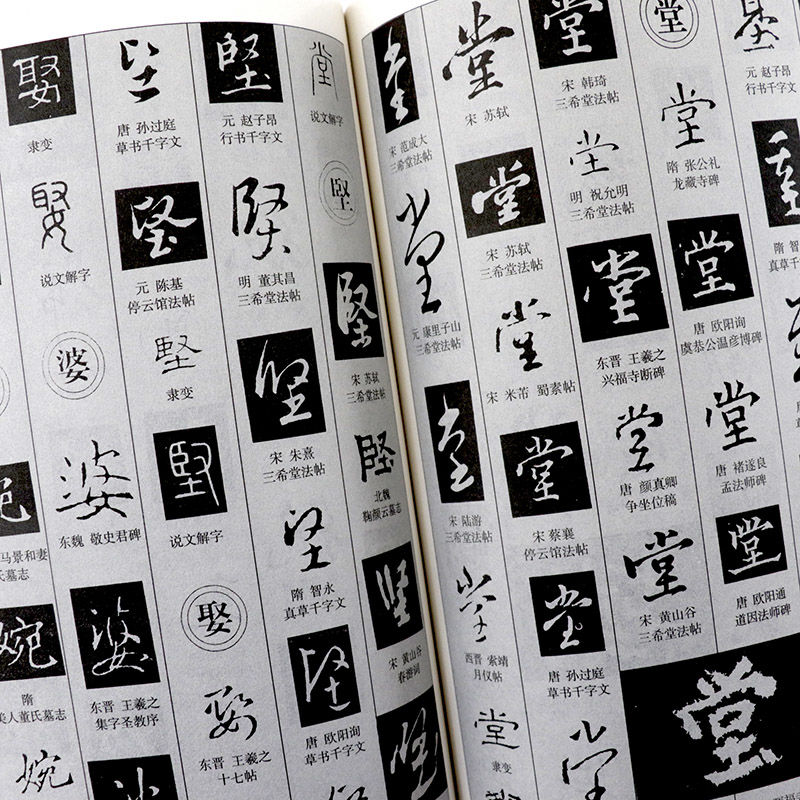 基
元 赵子昂
行书千字文
隋 智
真草千字文
堂
堂
隋 张公礼
龙藏寺碑
堂
唐 欧阳询
虞恭公温彦博碑
堂
唐 褚遂良
孟法师碑
堂
唐 欧阳通
道因法师碑
堂
宋 韩琦
三希堂法帖
堂
明 祝允明
三希堂法帖
堂
东晋 王羲之
兴福寺断碑
堂
唐 颜真卿
争坐位稿
堂
宋 黄山谷
三希堂法帖
堂
堂
宋 苏轼
堂
宋 苏轼
三希堂法帖
堂
宋 米芾 蜀素帖
堂
宋 蔡襄
停云馆法帖
堂
唐 孙过庭
草书千字文
堂
堂
宋 范成大
三希堂法帖
堂
元 康里子山
三希堂法帖
堂
宋 陆游
三希堂法帖
堂
西晋 索靖
月仪帖
堂
隶变
堂
说文解字
堅
堅
宋 苏轼
三希堂法帖
堅
北魏
鞠颜云墓志
堅
宋 黄山谷
春游词
堅
堅
元 赵子昂
行书千字文
堅
明 董其昌
三希堂法帖
堅
宋 朱熹
三希堂法帖
堅
隋 智永
真草千字文
堅
唐 欧阳询
草书千字文
堅
唐 孙过庭
草书千字文
堅
元 陈基
停云馆法帖
堅
隶变
堅
说文解字
娶
娶
东晋 王羲之
十七帖
娶
隶变
娶
说文解字
婆
婆
东魏 敬史君碑
婆
东晋 王羲之
集字圣教序
婆
婉
马景和妻
氏墓志
婉
隋
美人董氏墓志
婉